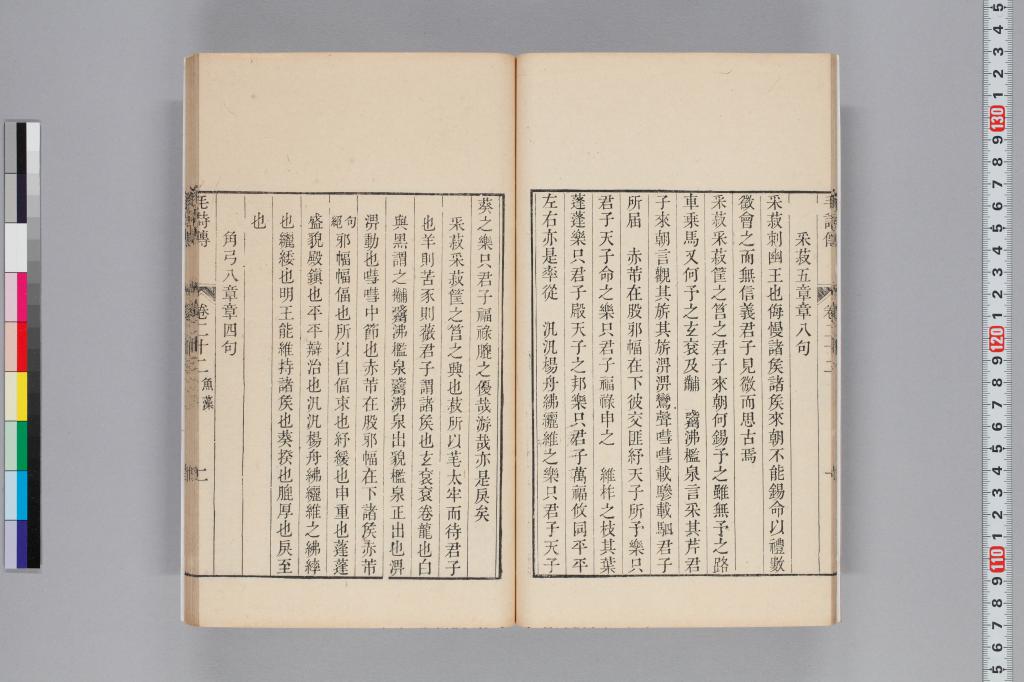 采菽五章章八句
采菽刺幽王也侮慢諸矦諸矦來朝不能錫命以禮數
徵會之而無信義君子見微而思古焉
采菽采菽筐之筥之君子來朝何錫予之雖無予之路
車乘馬又何予之玄衮及黼　觱沸檻泉言采其芹君
子來朝言觀其旂其旂淠淠鸞聲嘒嘒載驂載駟君子
所屆　赤芾在股邪幅在下彼交匪紓天子所予樂只
君子天子命之樂只君子福祿申之　維柞之枝其葉
蓬蓬樂只君子殿天子之邦樂只君子萬福攸同平平
左右亦是率從　汎汎楊舟紼纚維之樂只君子天子
葵之樂只君子福祿膍之優哉游哉亦是戾矣
采菽采菽筐之筥之興也菽所以芼太牢而待君子
也羊則苦豕則薇君子謂諸矦也玄衮衮卷龍也白
與黑謂之黼觱沸檻泉觱沸泉出貌檻泉正出也淠
淠動也嘒嘒中節也赤芾在股邪幅在下諸矦赤芾
句絕邪幅幅偪也所以自偪束也紓緩也申重也蓬蓬
盛貌殿鎮也平平辯治也汎汎楊舟紼纚維之紼繂
也纚緌也明王能維持諸矦也葵揆也膍厚也戾至
也
角弓八章章四句
毛詩傳
卷二十二
魚藻